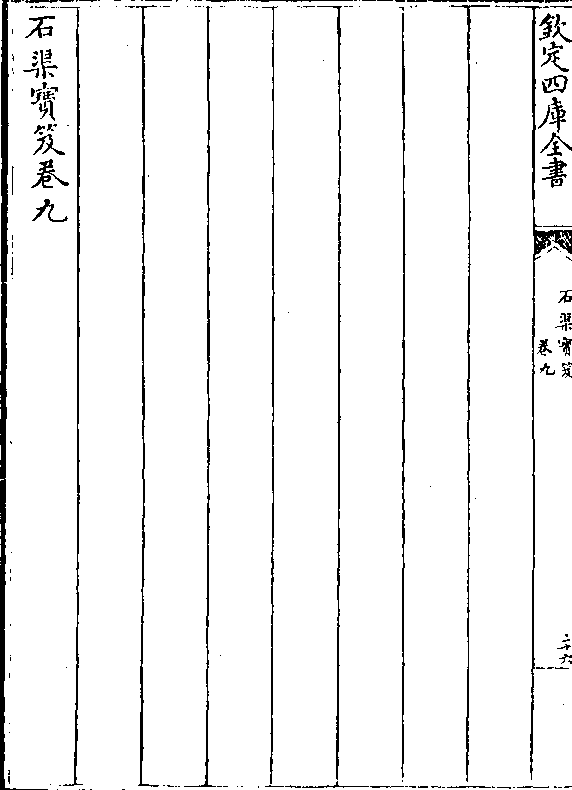 欽定四庫全書
石渠寶笈
卷九
二十六
石渠寶笈卷九